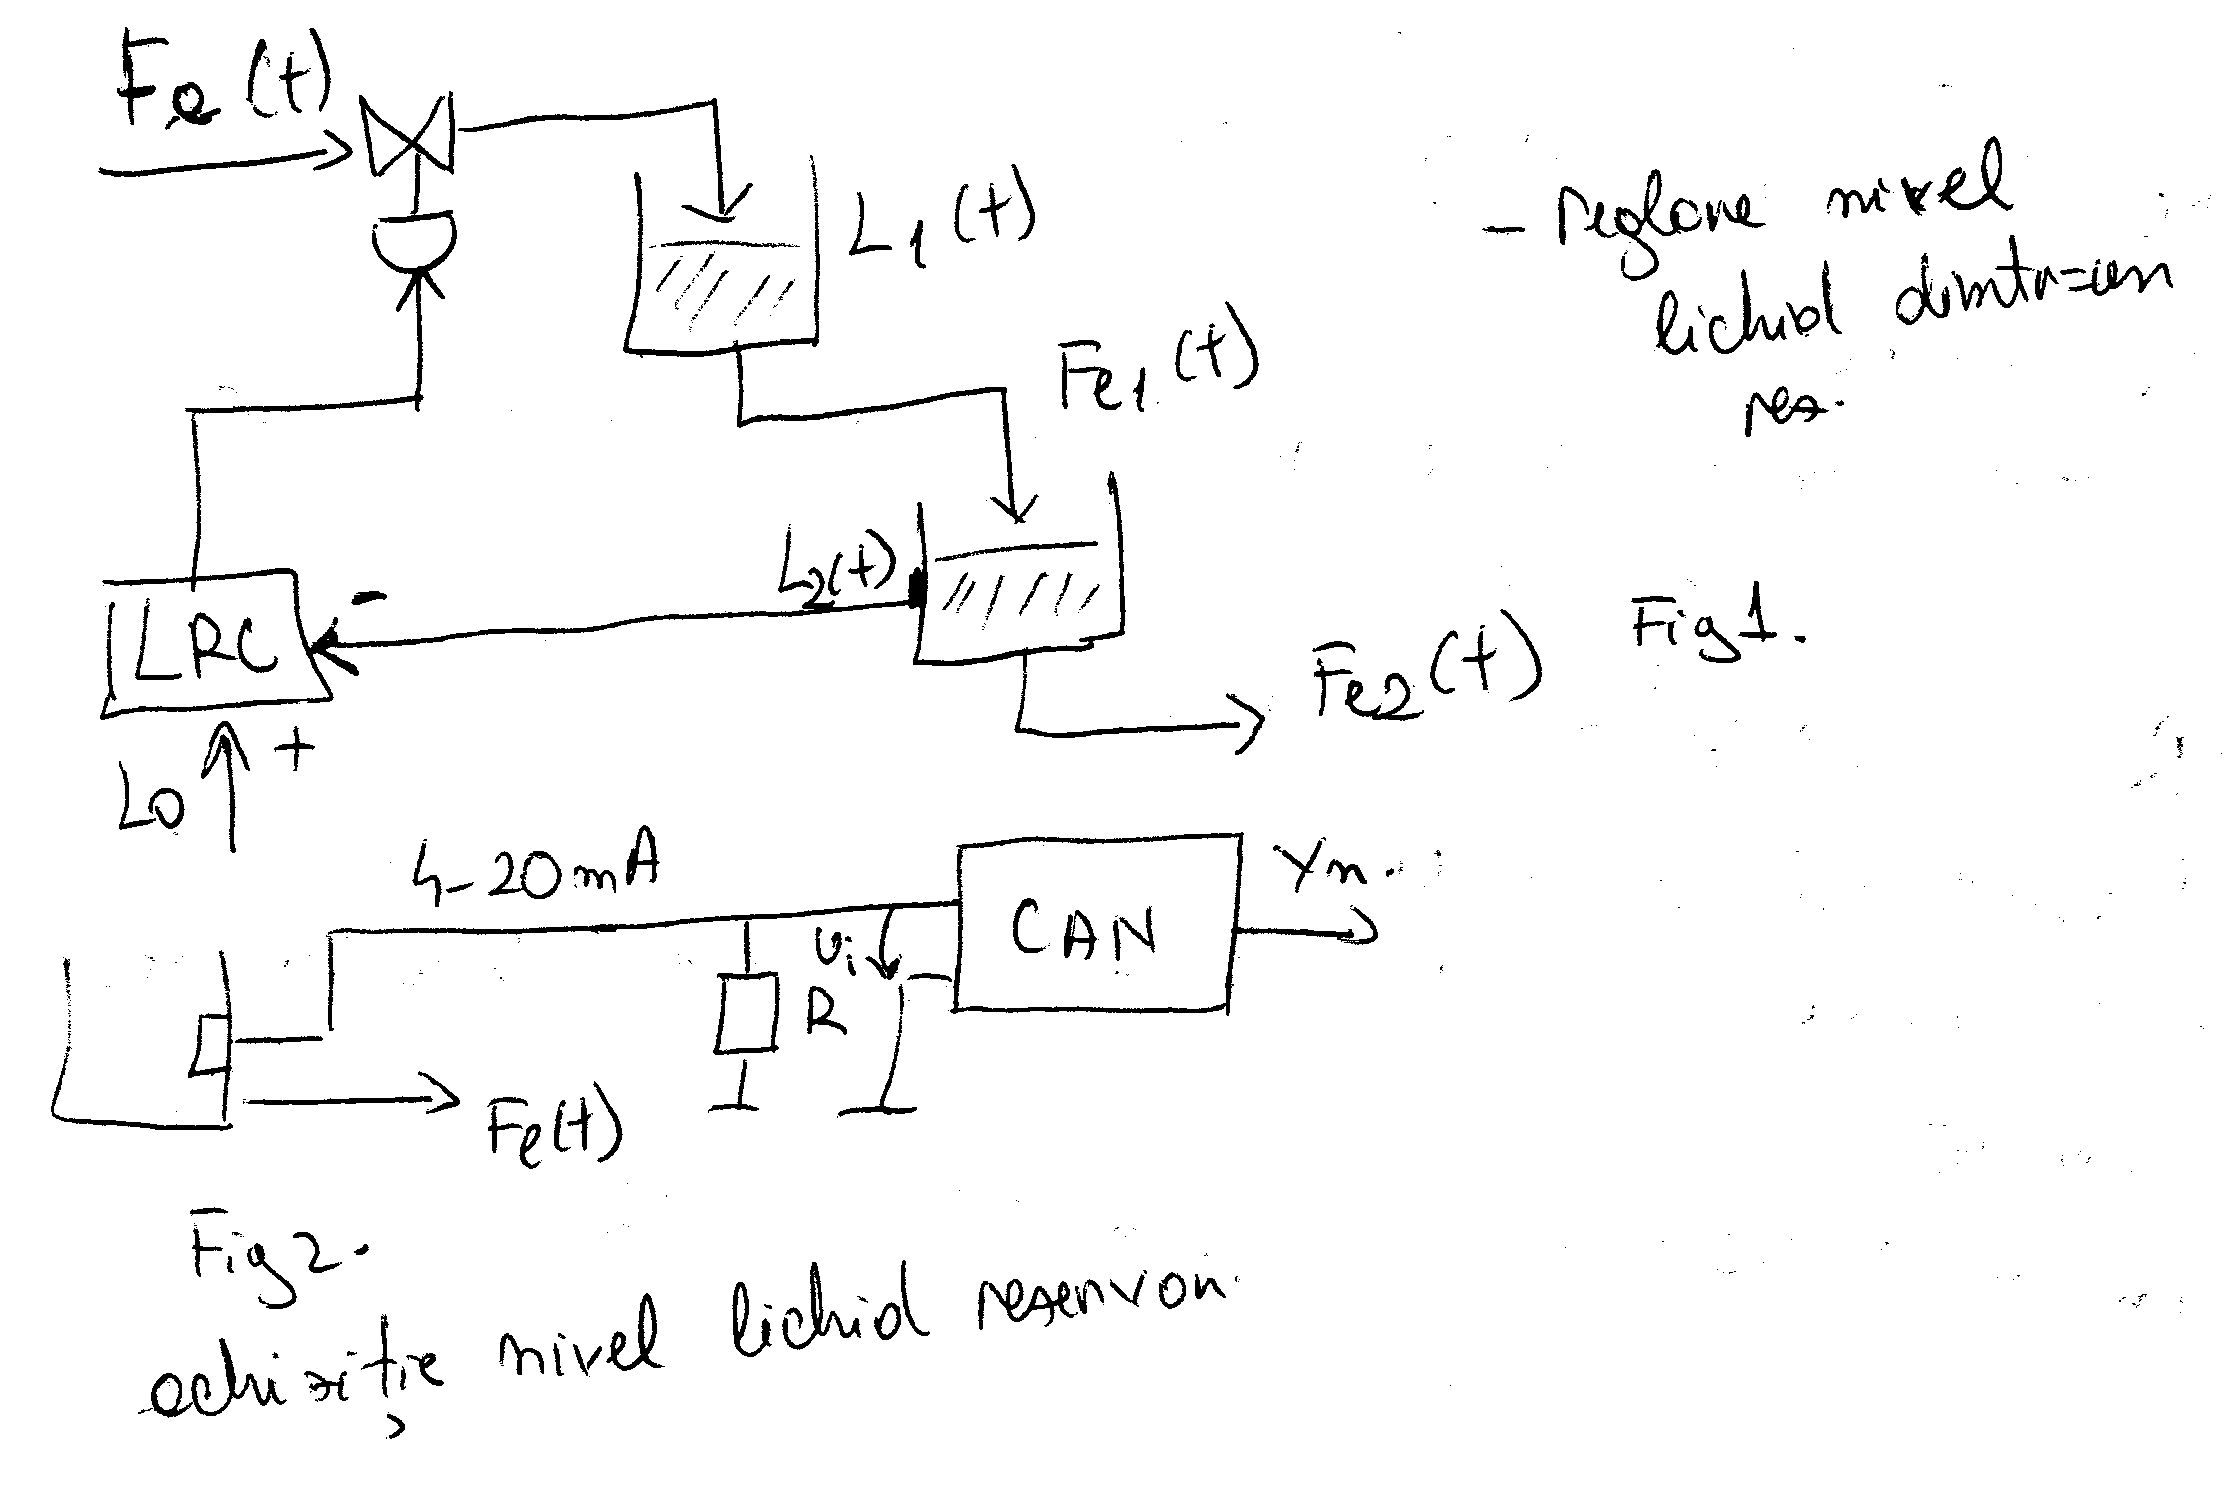 Fe(t)
L1(t)
- reglare nivel
lichid dintr-un
rez.
Fe1(t)
L2(t)
LRC
-
+
L0
Fe2(t)
Fig1.
4-20mA
Ui
R
CAN
Yn.
Fe(t)
Fig2.
achiziție nivel lichid rezervor.